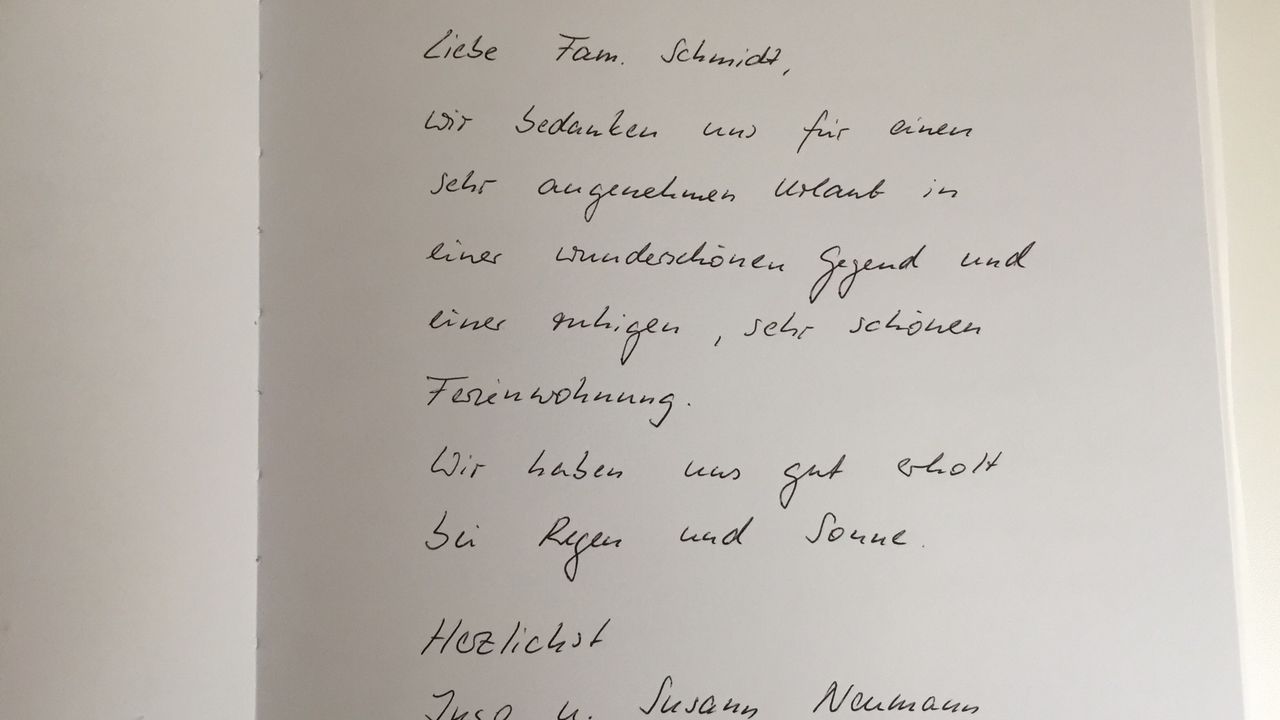 Liebe Fam. Schmidt,
wir bedanken uns für einen
sehr angenehmen Urlaub in
einer wunderschönen Gegend und
einer ruhigen, sehr schönen
Ferienwohnung.
Wir haben uns gut erholt
bei Regen und Sonne.
Herzlichst
Ingo u. Susann Neumann